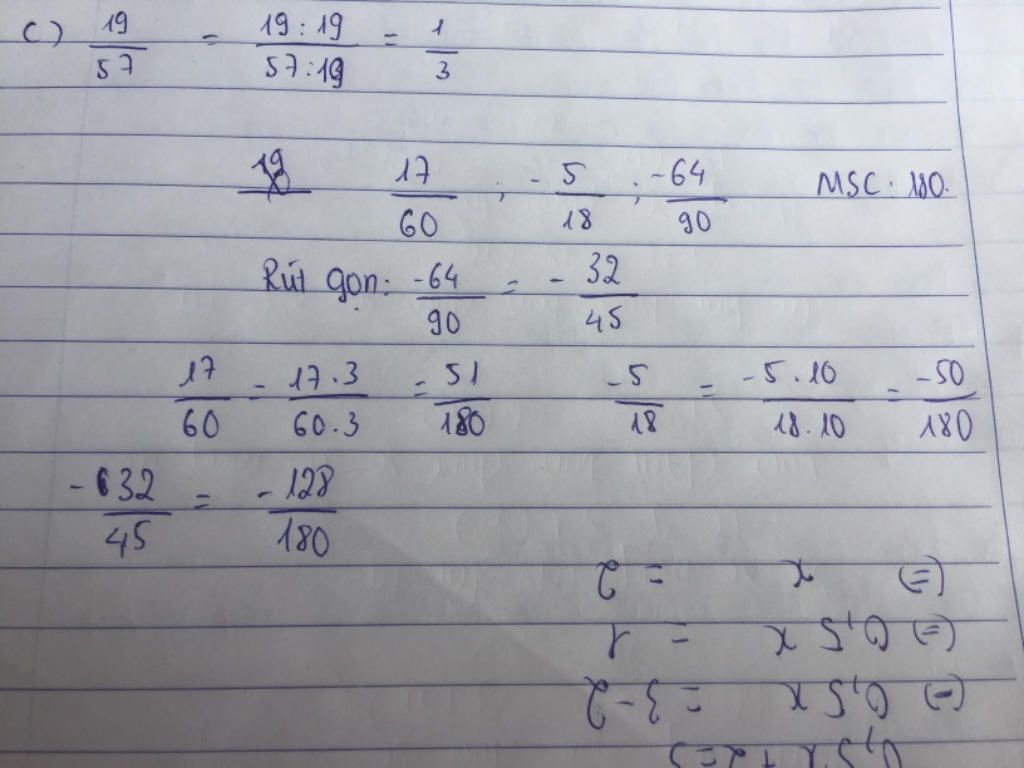 c) 19/57 = 19:19/57:19 = 1/3
17/60 ; -5/18 ; -64/90 MSC: 180.
Rút gọn: -64/90 = -32/45
17/60 = 17.3/60.3 = 51/180 -5/18 = -5.10/18.10 = -50/180
-32/45 = -128/180
0,5x + 2 = 3
(=) 0,5x = 3-2
(=) 0,5x = 1
(=) x = 2